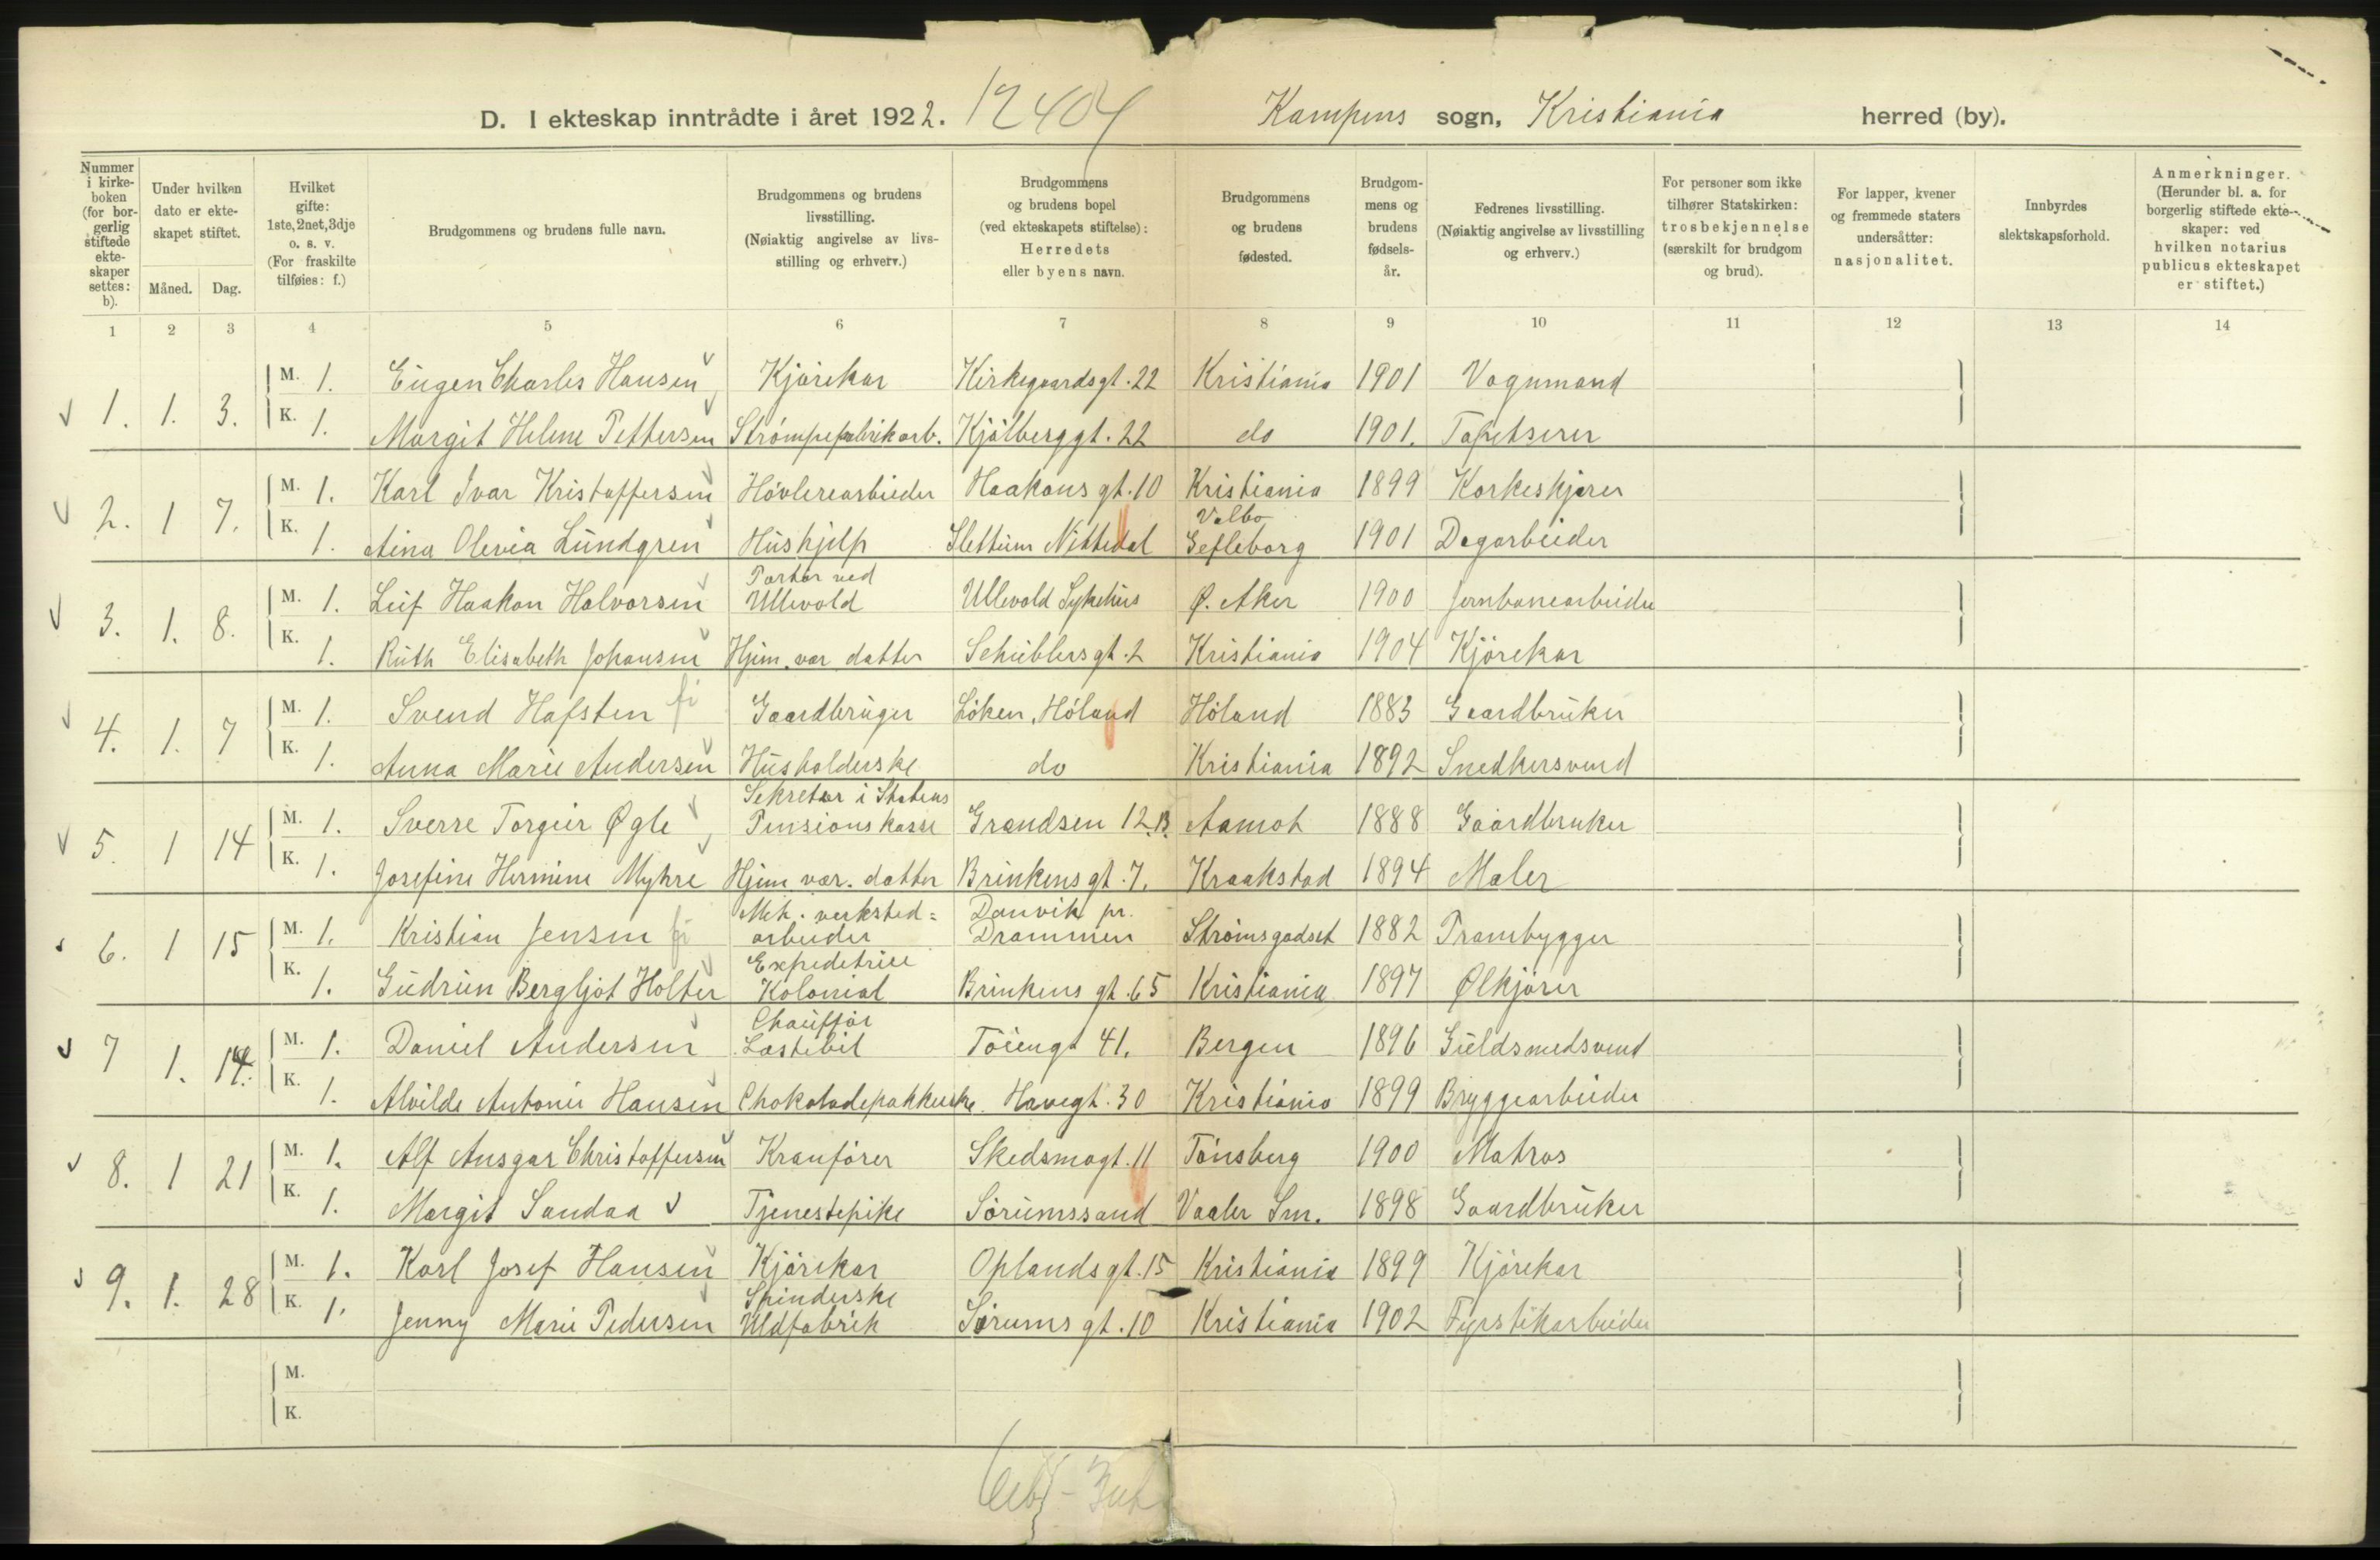 D. I ekteskap inntrådte i året 1922. 12404 Kampens sogn, Kristiania herred (by).
Nummer i kirkeboken (for borgerlig stiftede ekteskaper settes: b).
Under hvilken dato er ekteskapet stiftet.
Måned. Dag.
Hvilket gifte: 1ste, 2net, 3dje o. s. v. (For fraskilte tilføies: f.)
Brudgommens og brudens fulle navn.
Brudgommens og brudens livsstilling. (Nøiaktig angivelse av livsstilling og erhverv.)
Brudgommens og brudens bopel (ved ekteskapets stiftelse): Herredets eller byens navn.
Brudgommens og brudens fødested.
Brudgommens og brudens fødselsår.
Fedrenes livsstilling. (Nøiaktig angivelse av livsstilling og erhverv.)
For personer som ikke tilhører Statskirken: trosbekjennelse (særskilt for brudgom og brud).
For lapper, kvener og fremmede staters undersåtter: nasjonalitet.
Innbyrdes slektskapsforhold.
Anmerkninger. (Herunder bl. a. for borgerlig stiftede ekteskaper: ved hvilken notarius publicus ekteskapet er stiftet.)
1 2 3 4 5 6 7 8 9 10 11 12 13 14
1. 1. 3. M. 1. Eugen Charles Hansen Kjørekar Kirkegaardsgt. 22 Kristiania 1901 Vognmand
K. 1. Margit Helene Pettersen Strømpefabrikarb. Kjølberggt. 22 do 1901. Tapetserer
2. 1 7. M. 1. Karl Ivar Kristoffersen Høvlerearbeider Haakons gt. 10 Kristiania 1899 Korkeskjærer
K. 1. Aina Olevia Lundgren Hushjelp Slettum Nittedal Valbo Gefleborg 1901 Dagarbeider
3. 1. 8. M. 1. Leif Haakon Halvorsen Portør ved Ullevold Ullevold Sykehus Ø. Aker 1900 Jernbanearbeider
K. 1. Ruth Elisabeth Johansen Hjem. vær datter Schüblersgt. 2 Kristiania 1904 Kjørekar
4. 1. 7 M. 1. Svend Hafsten Gaardbruger Løken, Høland Høland 1883 Gaardbruker
K. 1. Anna Marie Andersen Husholderske do Kristiania 1892 Snedkersvend
5. 1 14 M. 1. Sverre Torgeir Øgle Sekretær i Statens Pensionskasse Grændsen 12.B. Aamot 1888 Gaardbruker
K. 1. Josefine Hermine Myhre Hjem vær. datter Brinkens gt. 7. Kraakstad 1894 Maler
6. 1 15 M. 1. Kristian Jensen Mek. verksted= arbeider Danvik pr. Drammen Strømsgodset 1882 Prambygger
K. 1. Gudrun Bergljot Holter Expeditrice Kolonial Brinkens gt. 65 Kristiania 1897 Ølkjører
7 1. 14. M. 1. Daniel Andersen Chauffør Lastebil Tøiengt 41. Bergen 1896 Guldsmedsvend
K. 1. Alvilde Antonie Hansen Chokoladepakkerske Havegt. 30 Kristiania 1899 Bryggearbeider
8. 1 21 M. 1. Alf Ansgar Christoffersen Kranfører Skedsmogt. 11 Tønsberg 1900 Matros
K. 1. Margit Sandaa Tjenestepike Sørumssand Vaaler Sm. 1898 Gaardbruker
9. 1. 28 M. 1. Karl Josef Hansen Kjørekar Oplandsgt. 15 Kristiania 1899 Kjørekar
K. 1. Jenny Marie Pedersen Spinderske Uldfabrik Sørums gt. 10 Kristiania 1902 Fyrstikarbeider
M.
K.